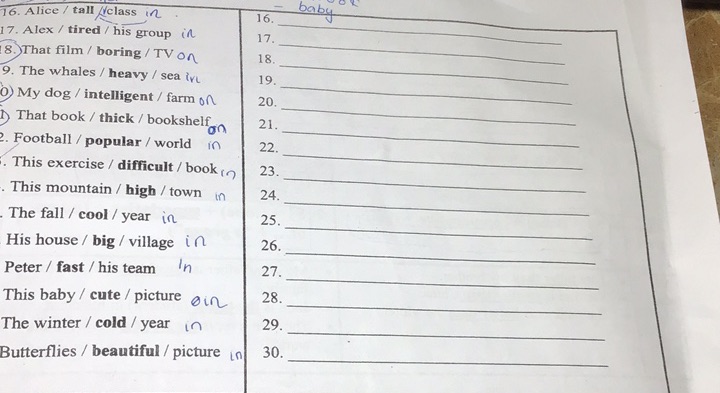 baby
16. Alice / tall / class in
17. Alex / tired / his group in
18. That film / boring / TV on
9. The whales / heavy / sea in
0) My dog / intelligent / farm on
) That book / thick / bookshelf on
2. Football / popular / world in
. This exercise / difficult / book in
. This mountain / high / town in
. The fall / cool / year in
His house / big / village in
Peter / fast / his team In
This baby / cute / picture in
The winter / cold / year in
Butterflies / beautiful / picture in
16.
17.
18.
19.
20.
21.
22.
23.
24.
25.
26.
27.
28.
29.
30.